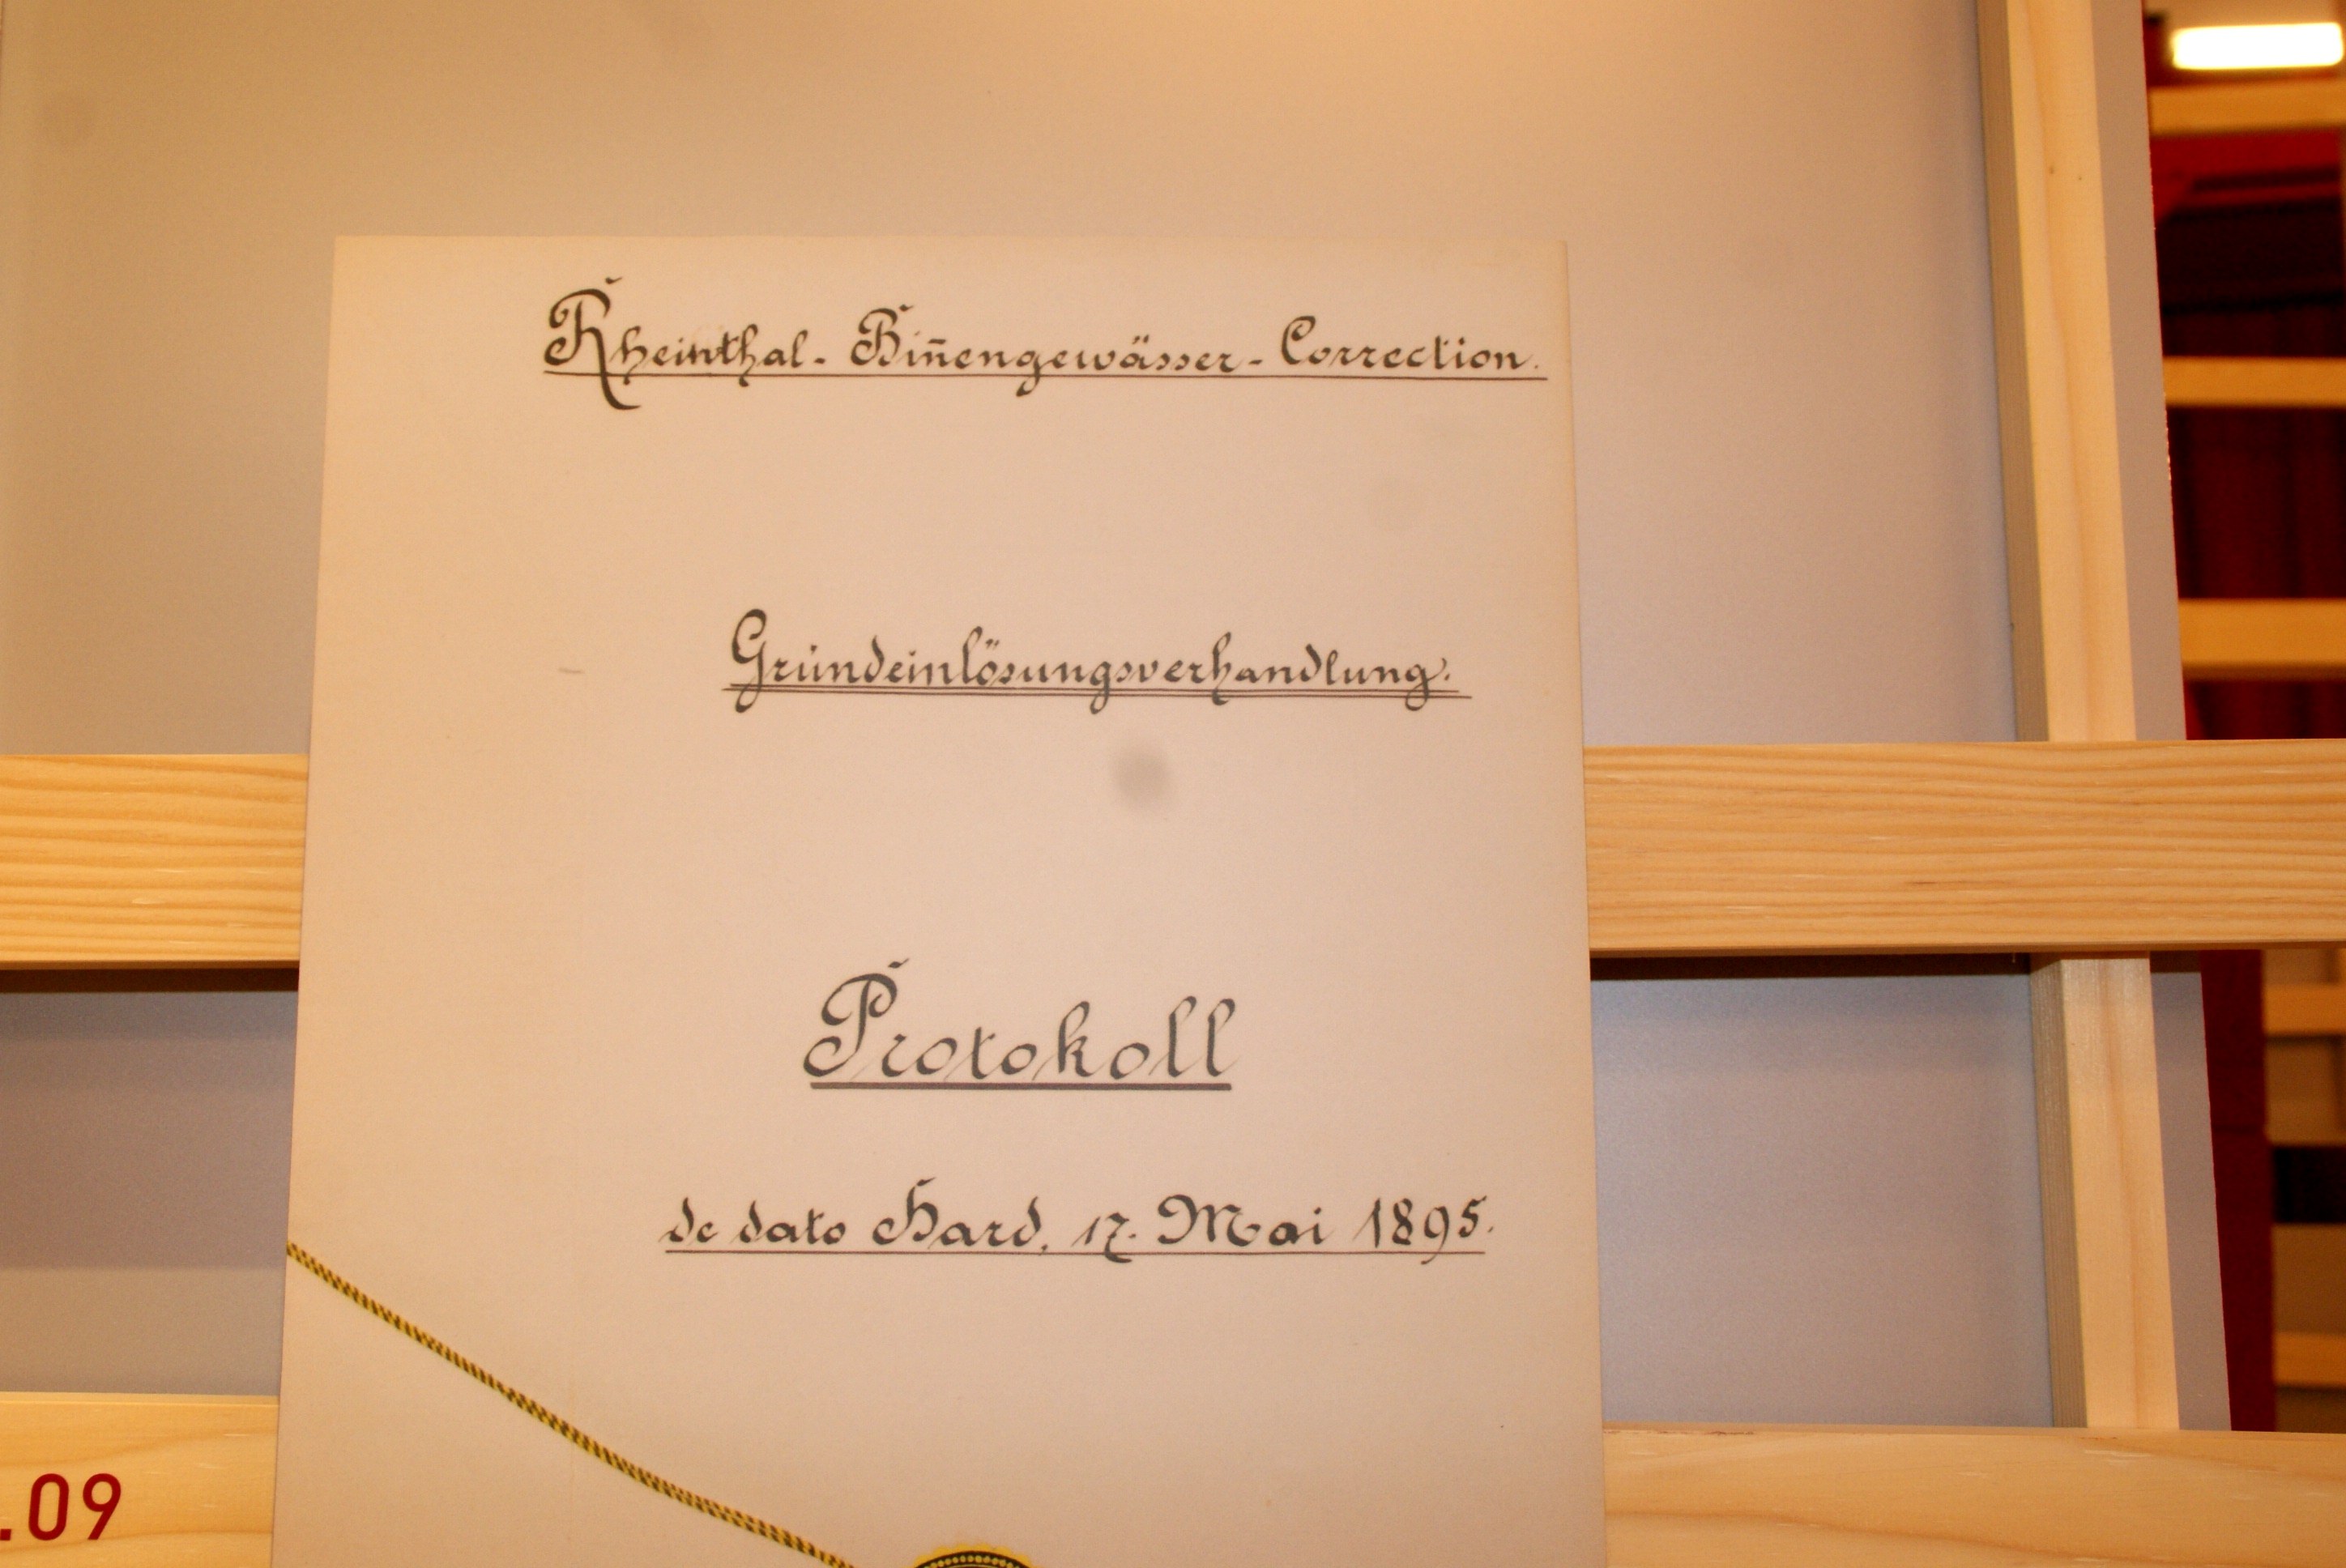 Rheinthal - Bin̄engewässer - Correction.
Grundeinlösungsverhandlung.
Protokoll
de dato Hard, 17. Mai 1895.
.09